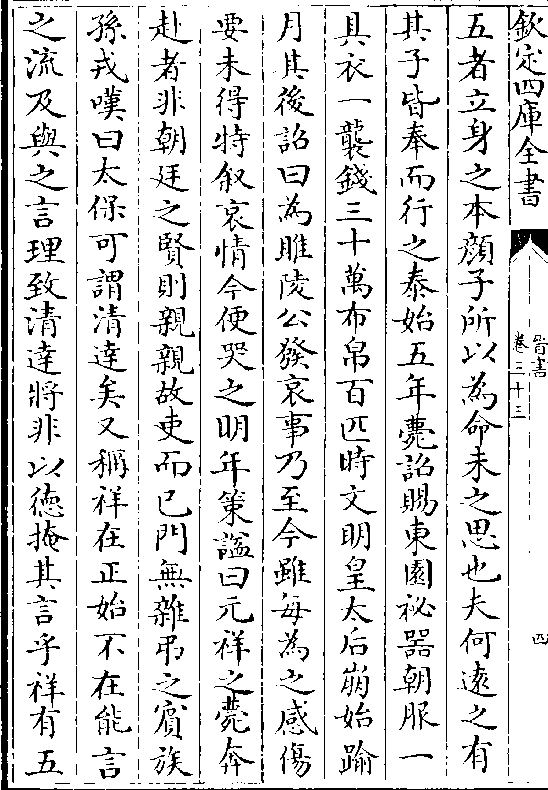 欽定四庫全書
晉書
卷三十三
四
五者立身之本顔子所以為命未之思也夫何逺之有
其子皆奉而行之泰始五年薨詔賜東園祕器朝服一
具衣一襲錢三十萬布帛百匹時文明皇太后崩始踰
月其後詔曰為睢陵公發哀事乃至今雖每為之感傷
要未得特叙哀情今便哭之明年策謚曰元祥之薨奔
赴者非朝廷之賢則親親故吏而已門無雜弔之賔族
孫戎嘆曰太保可謂清逹矣又稱祥在正始不在能言
之流及與之言理致清逹將非以徳掩其言乎祥有五